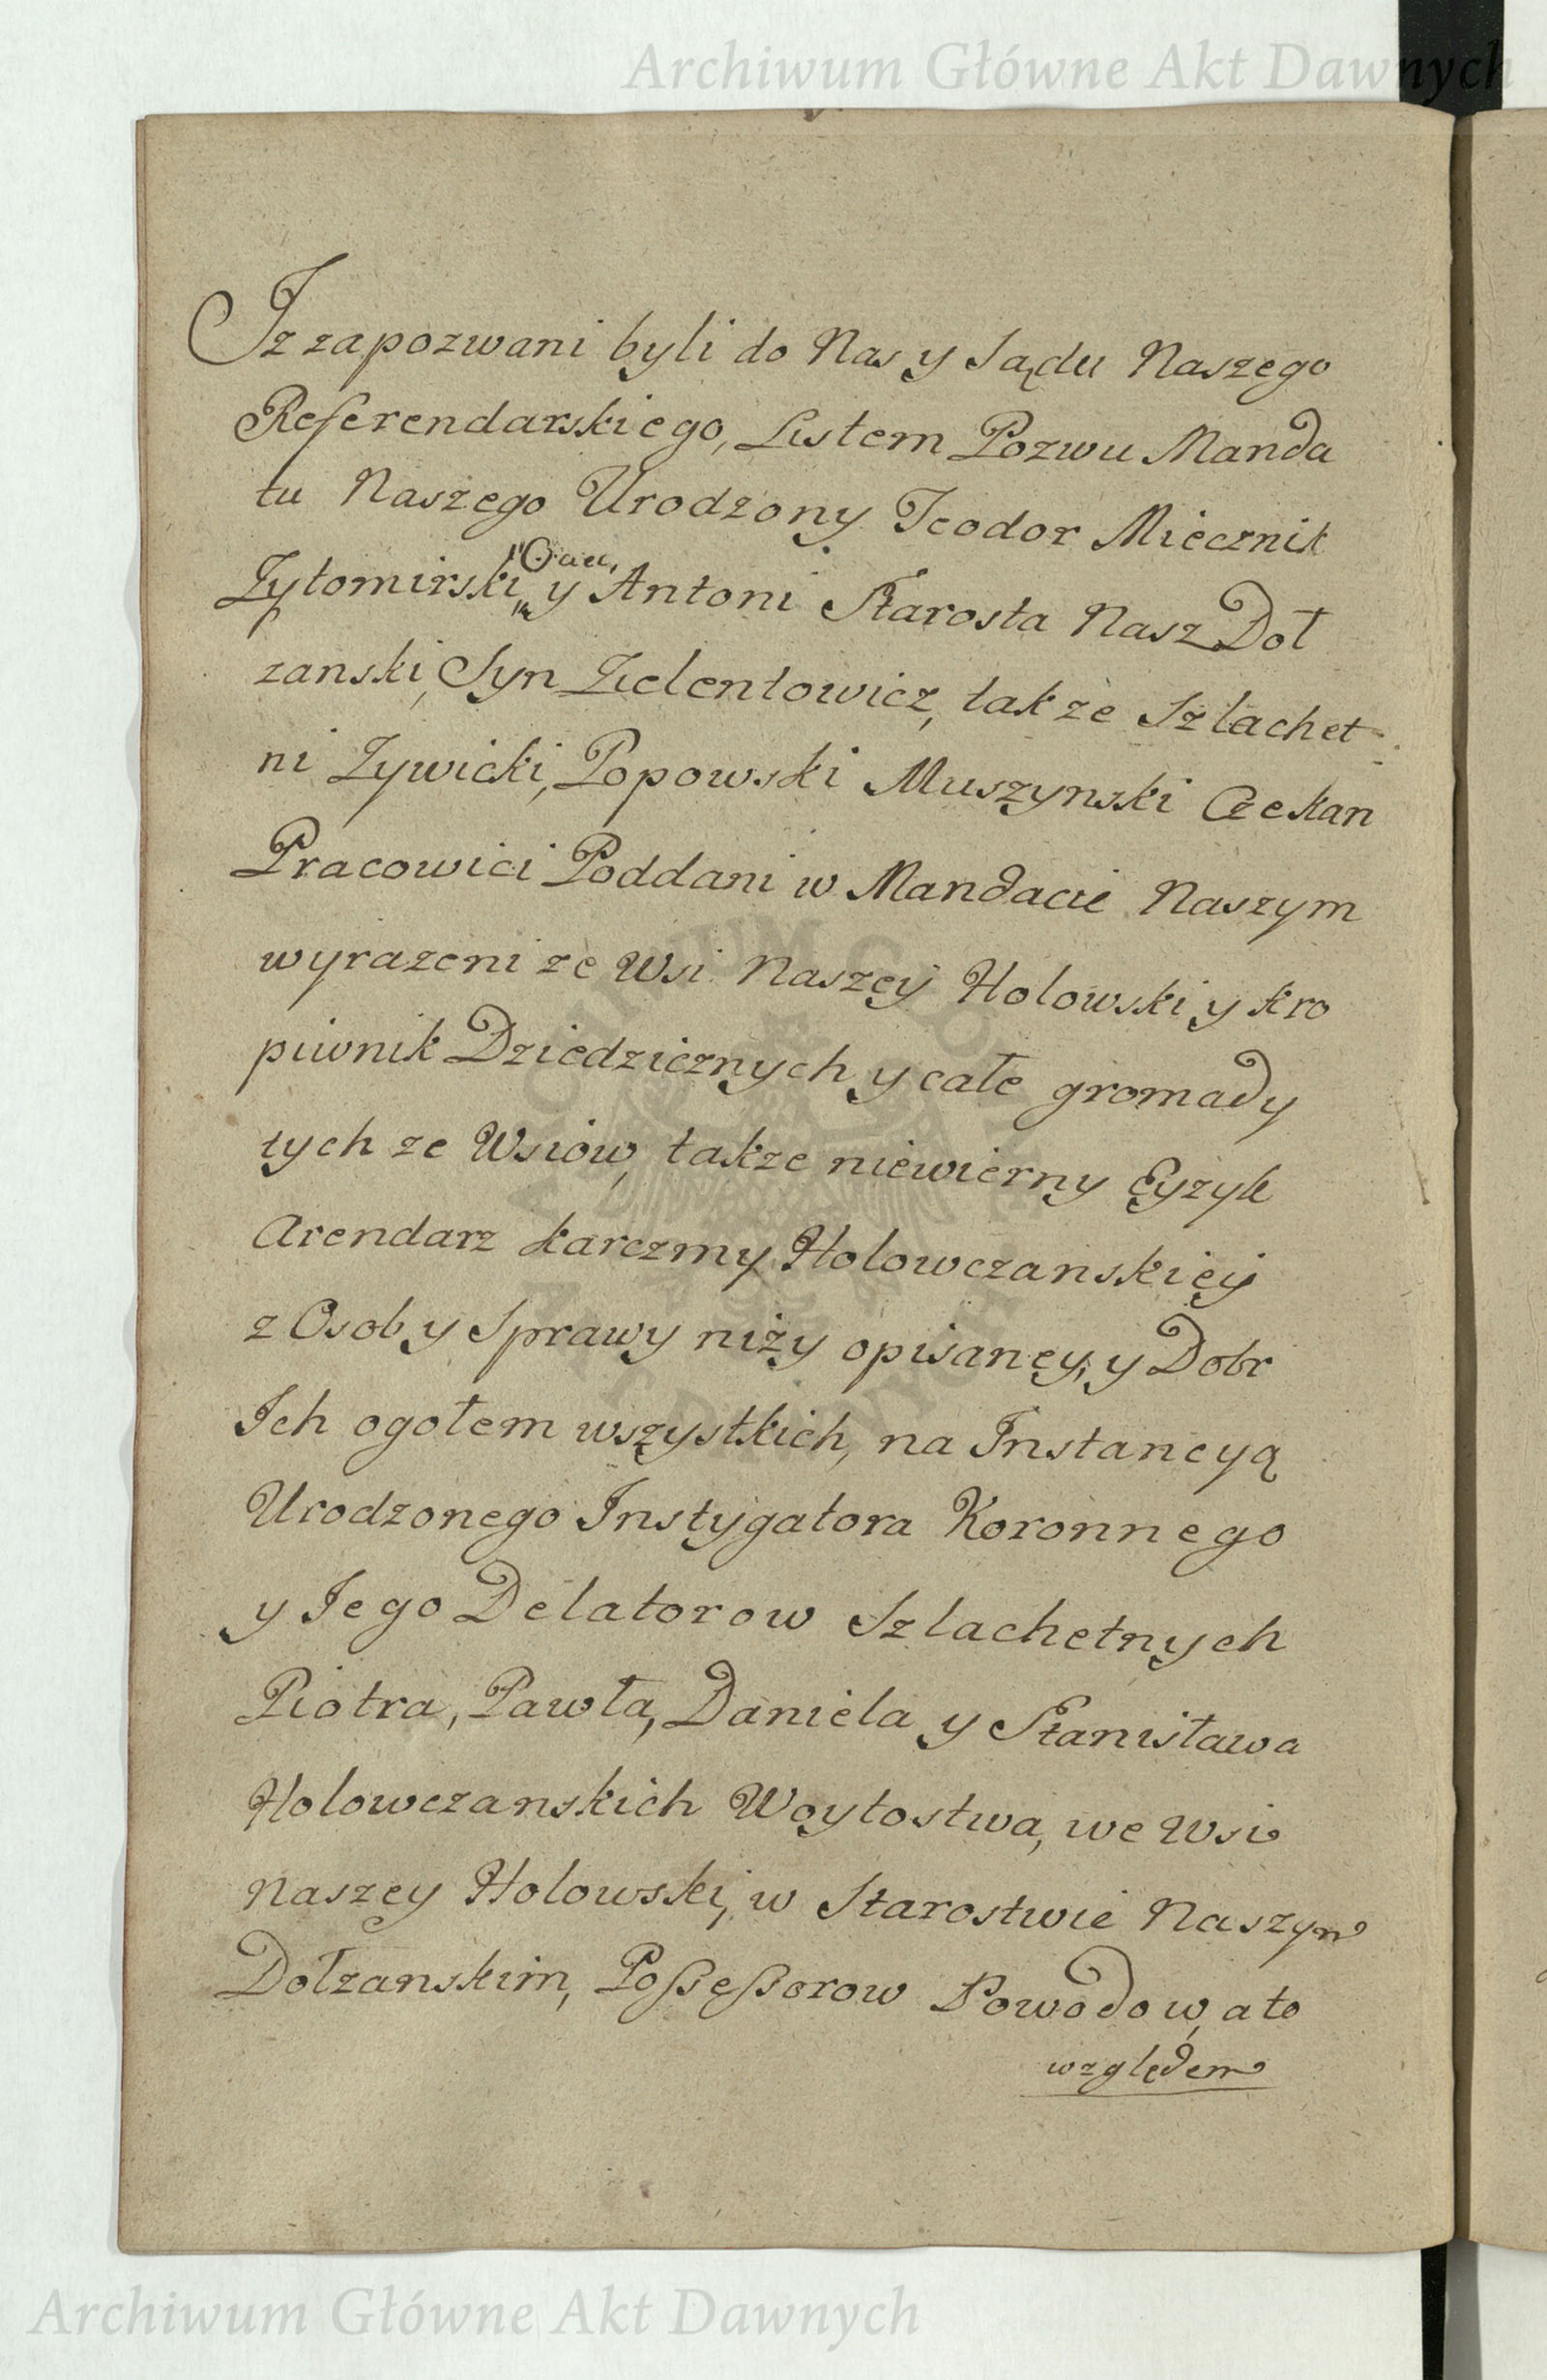 Archiwum Główne Akt Dawnych
Iz zapozwani byli do Nas y Sądu Naszego
Referendarskiego, Listem Pozwu Manda
tu Naszego Urodzony Teodor Miecznik
Ociec
Zytomirski, y Antoni Starosta Nasz Doł
zanski, Syn Zielentowicz, takze Szlachet
ni Zywicki, Popowski Muszynski Czekan
Pracowici Poddani w Mandacie Naszym
wyrazeni ze Wsi Naszey Holowski y Kro
piwnik Dziedzicznych y całe gromady
tych ze Wsiow, takze niewierny Eyzyk
Arendarz karczmy Holowczanskiey
z Osob y Sprawy niży opisaney, y Dobr
Ich ogołem wszystkich, na Instancyą
Urodzonego Instygatora Koronnego
y Iego Delatorow Szlachetnych
Piotra, Pawła, Daniela y Stanisława
Holowczanskich Woytostwa, we Wsi
Naszey Holowski, w Starostwie Naszym
Dołzanskim, Possessorow Powodow, a to
względem
Archiwum Główne Akt Dawnych